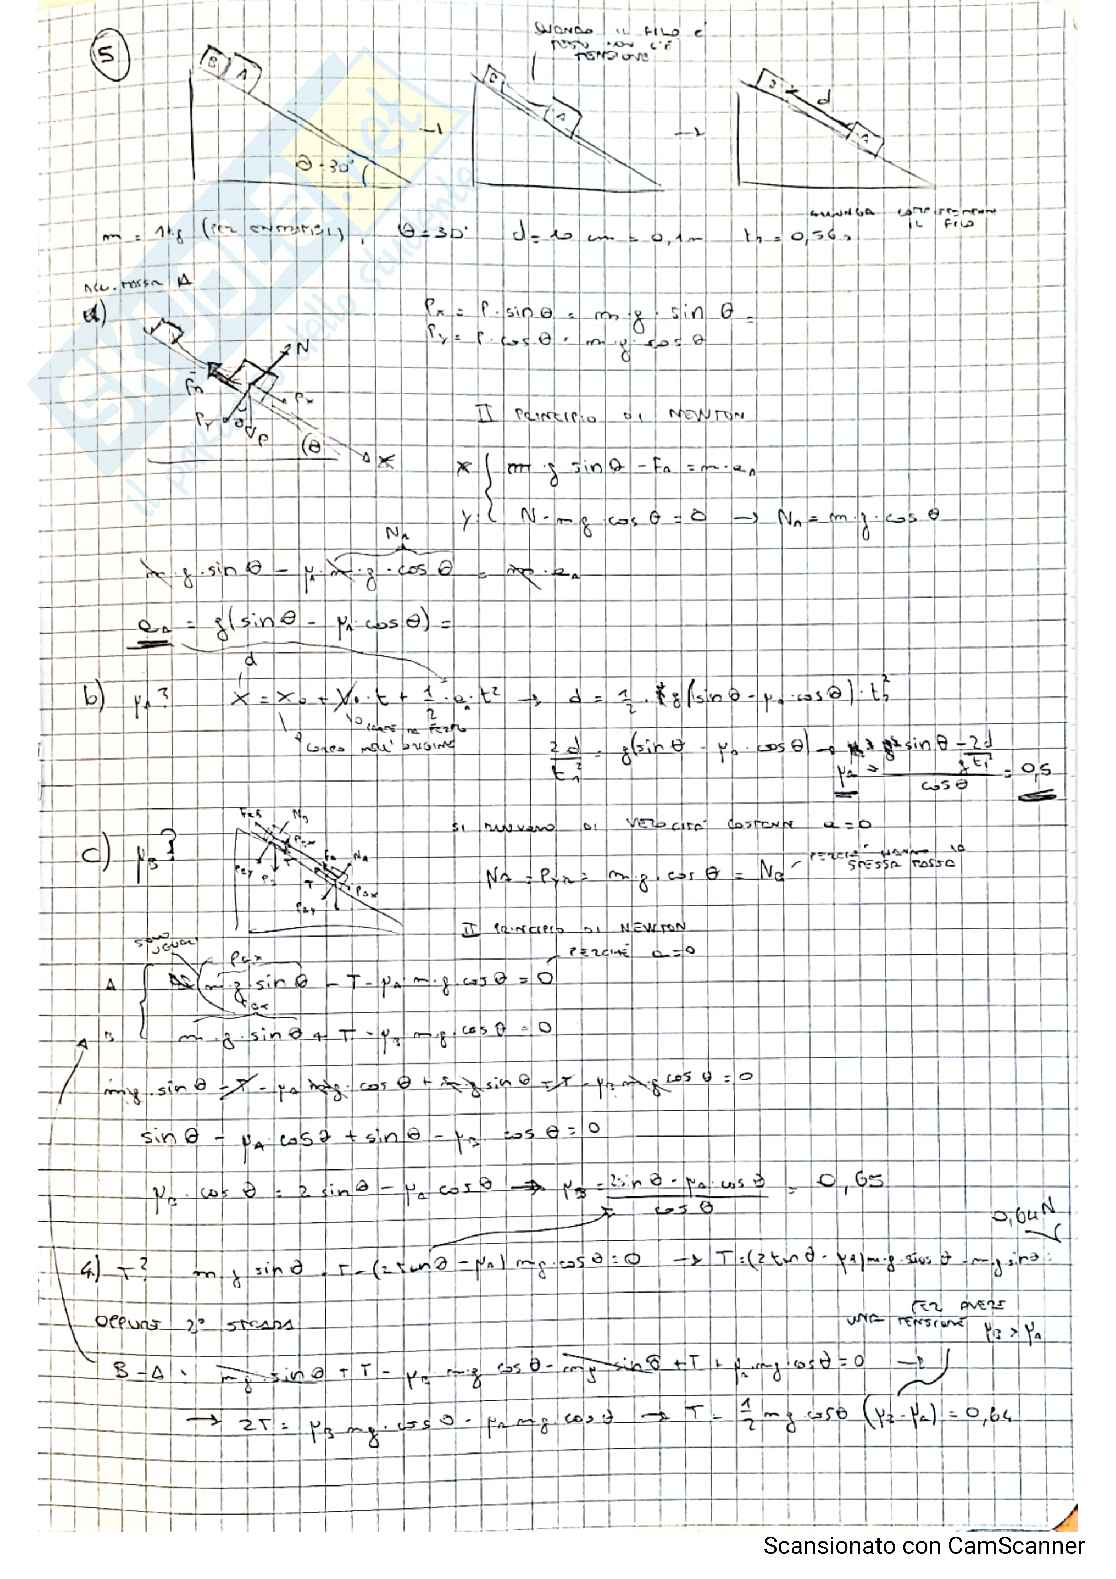 5
QUANDO IL FILO È
TESO NON C'È
TENSIONE
B A
B A
B d A
θ = 30°
→
→
m = 1kg (PER ENTRAMBI), θ = 30° d = 10 cm = 0,1m t₁ = 0,56s
IL FILO
ACC. MASSA A
a)
Pₓ = P · sin θ = m · g · sin θ =
P_y = P · cos θ = m · g · cos θ
N
F_A
Pₓ
P_y θ P
θ
x
II PRINCIPIO DI NEWTON
x { m · g sin θ - F_A = m · a_A
y { N - m g cos θ = 0 → N_A = m · g · cos θ
N_A
m g · sin θ - μ_A · m · g · cos θ = m · a_A
a_A = g(sin θ - μ_A cos θ) =
d
b) μ_A? x = x₀ + v₀ · t + 1/2 · a_A t² → d = 1/2 · g(sin θ - μ_A · cos θ) · t₁²
CORPO NELL'ORIGINE
2d/t₁² = g(sin θ - μ_A · cos θ) → μ_A = (sin θ - 2d/(g t₁²))/cos θ = 0,5
c) μ_B?
SI MUOVONO DI VELOCITÀ COSTANTE a = 0
N_A = P_yA = m · g · cos θ = N_B
PERCHÉ HANNO LA
STESSA MASSA
II PRINCIPIO DI NEWTON
PERCHÉ a = 0
SONO
UGUALI
A { m · g sin θ - T - μ_A m · g · cos θ = 0
B { m · g · sin θ + T - μ_B m g · cos θ = 0
m g · sin θ - T - μ_A m g · cos θ + m g sin θ + T - μ_B m g cos θ = 0
sin θ - μ_A cos θ + sin θ - μ_B cos θ = 0
μ_B · cos θ = 2 sin θ - μ_A cos θ → μ_B = (2 sin θ - μ_A · cos θ)/cos θ = 0,65
0,64 N
4.) T? m g sin θ + T - (2 tan θ - μ_A) m g · cos θ = 0 → T = (2 tan θ - μ_A) m · g · cos θ - m · g sin θ =
OPPURE 2° STRADA
PER AVERE
UNA TENSIONE μ_B > μ_A
B - A : m g · sin θ + T - μ_B m g cos θ - m g sin θ + T + μ_A m g · cos θ = 0 →
→ 2T = μ_B m g · cos θ - μ_A m g cos θ → T = 1/2 m g cos θ (μ_B - μ_A) = 0,64
Scansionato con CamScanner